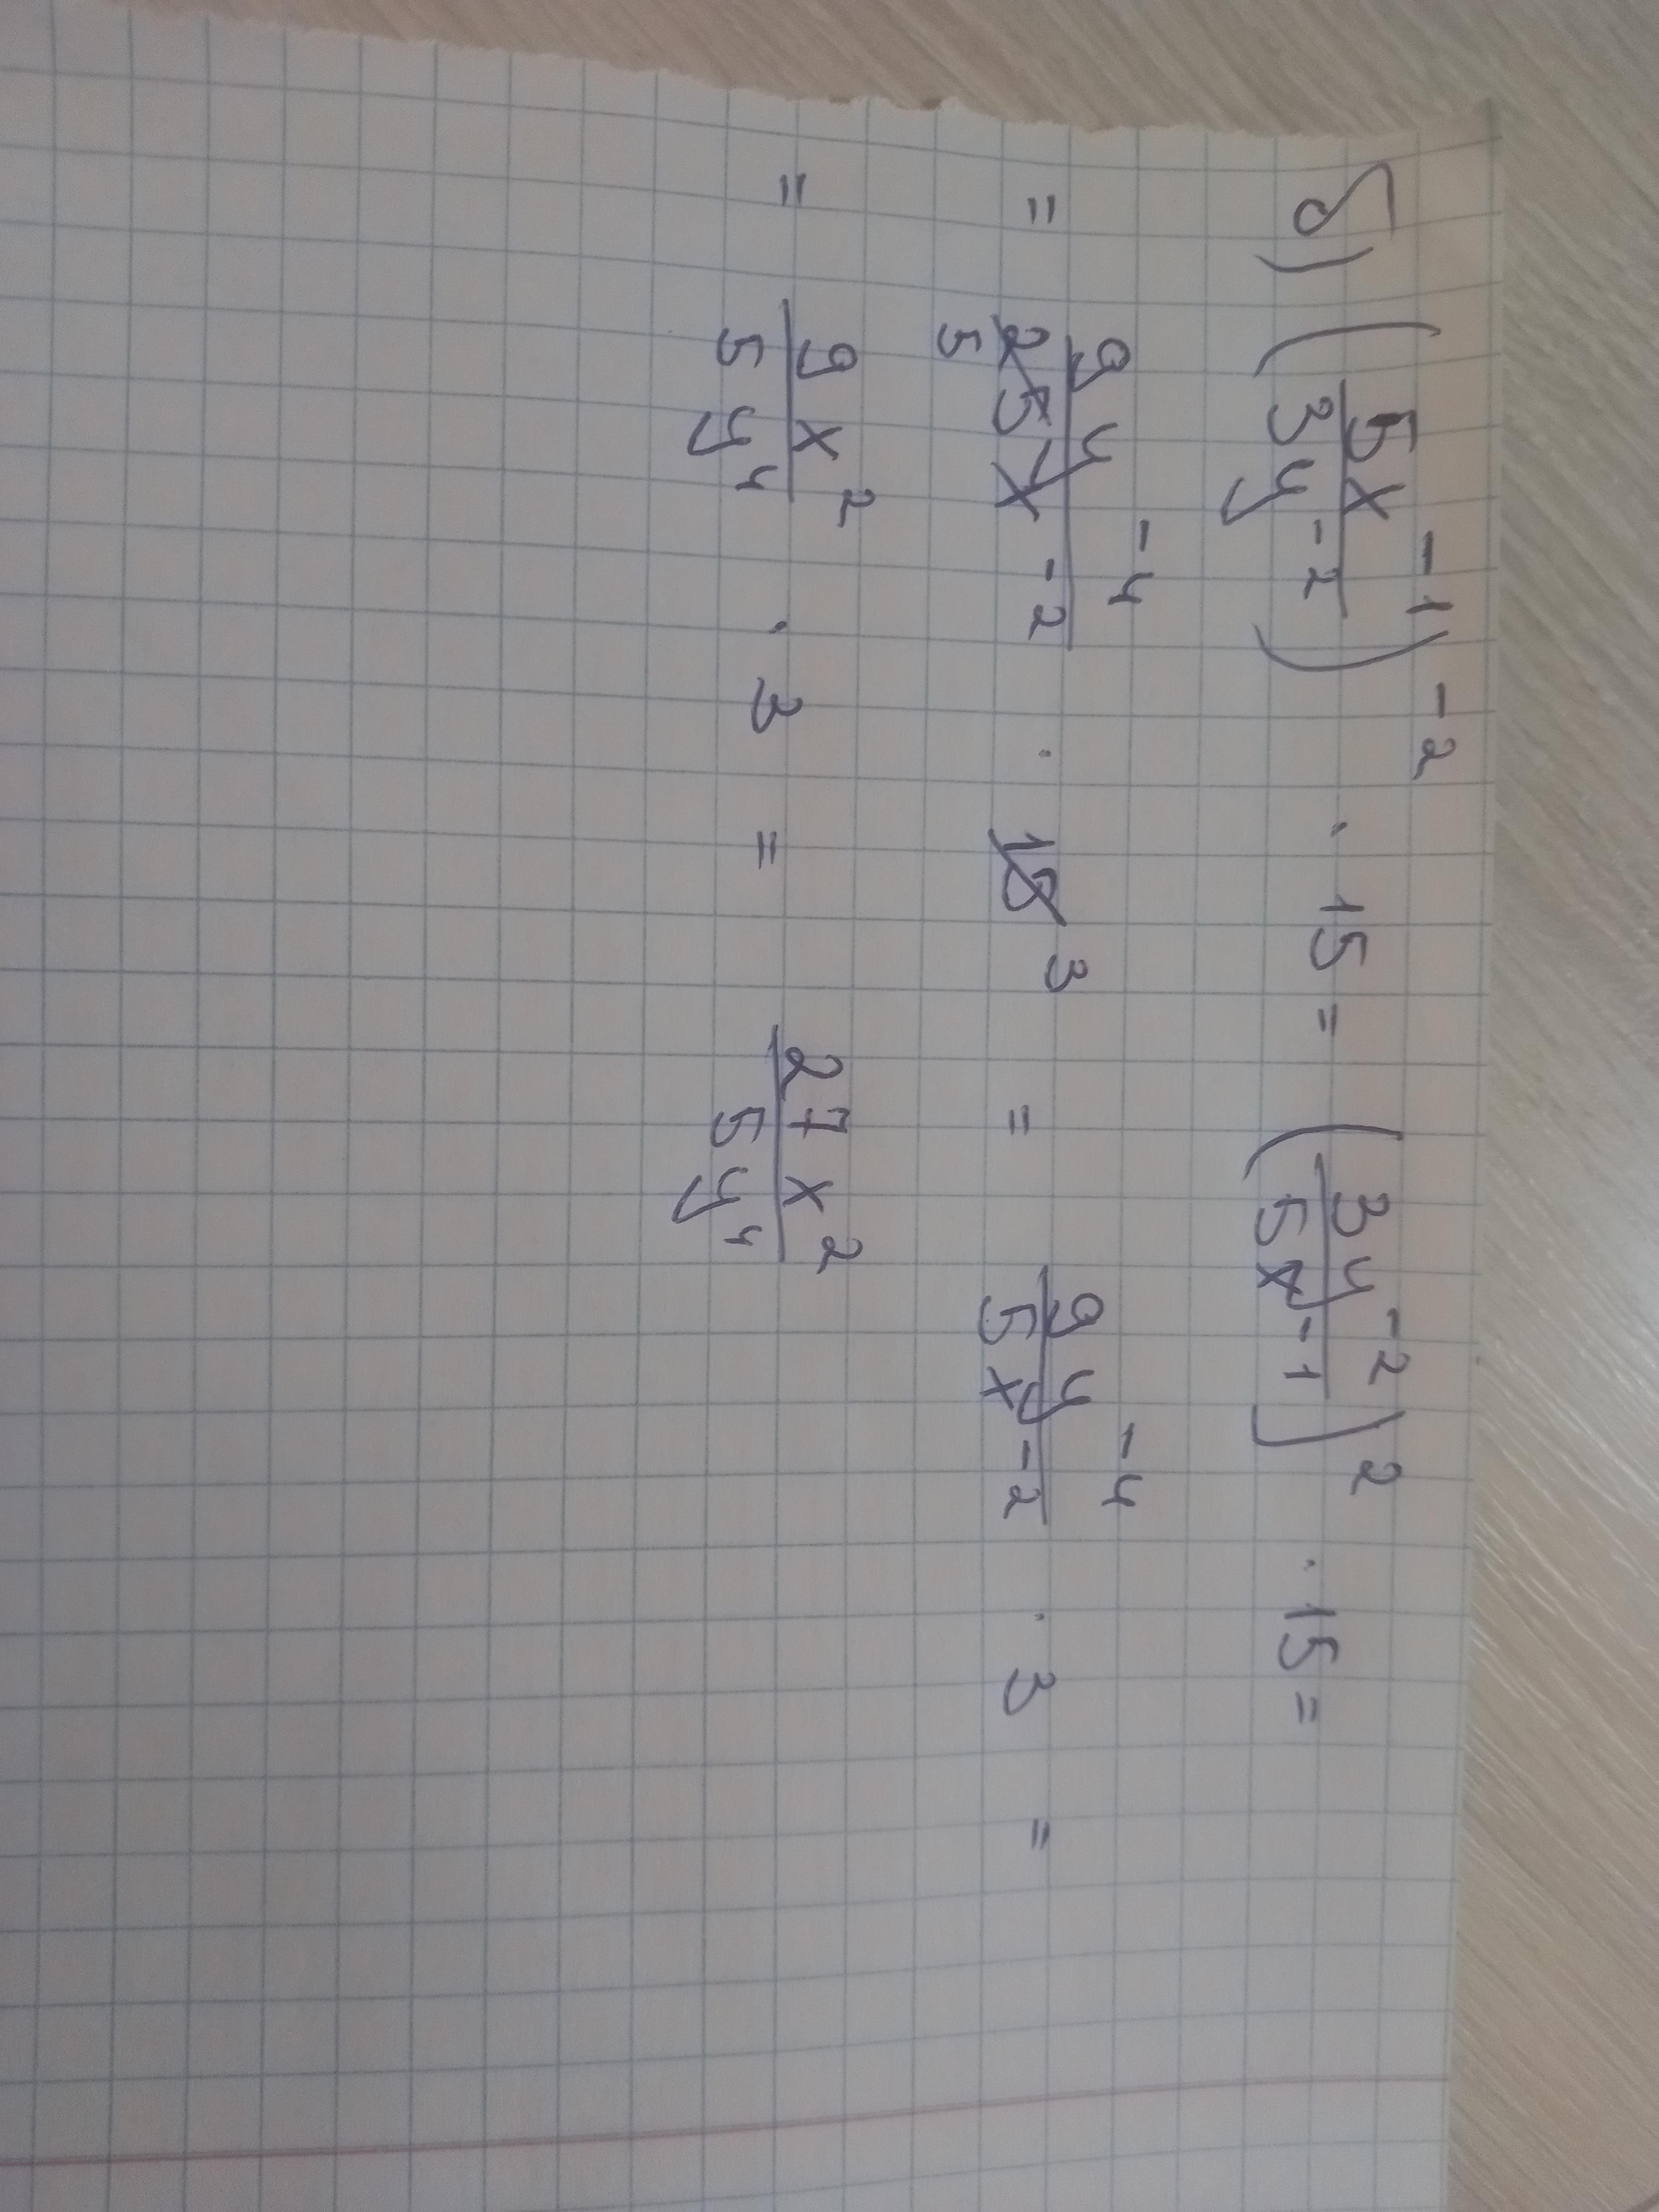 б) (5x^-1 / 3y^-2)^-2 · 15 = (3y^-2 / 5x^-1)^2 · 15 =
= 9y^-4 / 25x^-2 5 · 15 3 = 9y^-4 / 5x^-2 · 3 =
= 9x^2 / 5y^4 · 3 = 27x^2 / 5y^4